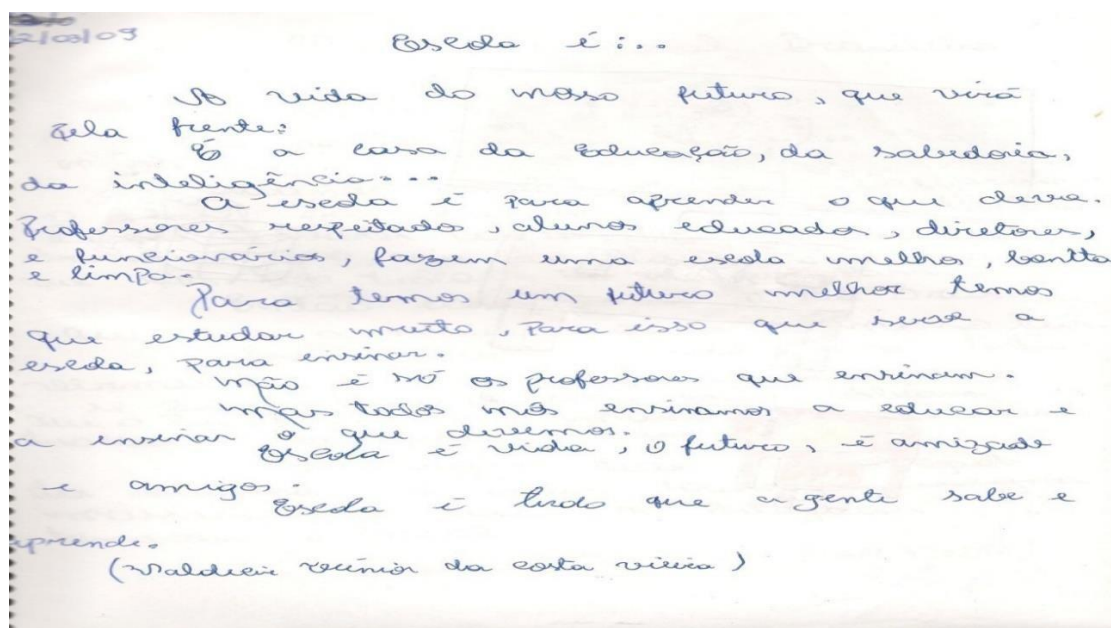 2/03/09
Escola é:...
A vida do nosso futuro, que virá
pela frente:
É a casa da Educação, da sabedoria,
da inteligência....
A escola é para aprender o que deve.
Professores respeitado, alunos educados, diretores,
e funcionários, fazem uma escola melho, bonita
e limpa.
Para temos um futuro melhor temos
que estudar muito, para isso que serve a
escola, para ensinar.
Não é só os professores que ensinam.
Mas todos nós ensinamos a educar e
a ensinar o que devemos.
Escola é vida, o futuro, é amizade
e amigos.
Escola é tudo que a gente sabe e
aprende.
(Valdieir Júnior da costa vieira)